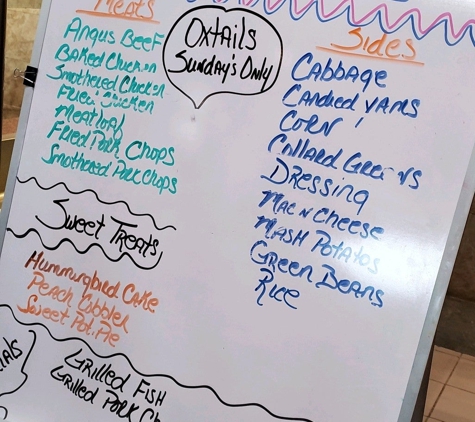 Meats
Angus Beef
Baked Chicken
Smothered Chicken
Fried Chicken
Meatloaf
Fried Pork Chops
Smothered Pork Chops
Oxtails
Sunday's Only
Sides
Cabbage
Candied Yams
Corn
Collard Greens
Dressing
Mac N Cheese
Mash Potatos
Green Beans
Rice
Sweet Treats
Hummingbird Cake
Peach Cobbler
Sweet Pot. Pie
Grilled Fish
Grilled Pork